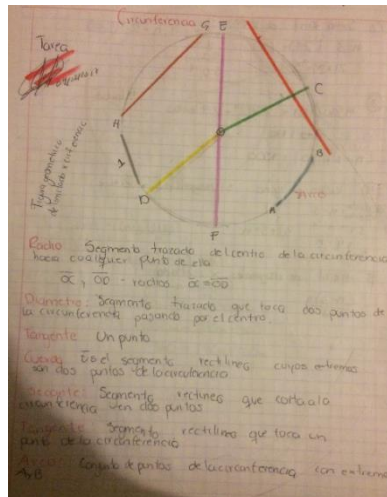 Circunferencia
Tarea
G E
C
A
B
D
A
F
Radio Segmento trazado del centro de la circunferencia
hacia cualquier punto de ella
OC, OD = radios OC = OD
Diametro: Segmento trazado que toca dos puntos de
la circunferencia pasando por el centro
Tangente Un punto
Cuerda es el segmento rectilineo cuyos extremos
son dos puntos de la circunferencia
Secante: Segmento rectilineo que corta a la
circunferencia en dos puntos
Tangente Segmento rectilineo que toca un
punto de la circunferencia
Arco: Conjunto de puntos de la circunferencia con extremos
A y B